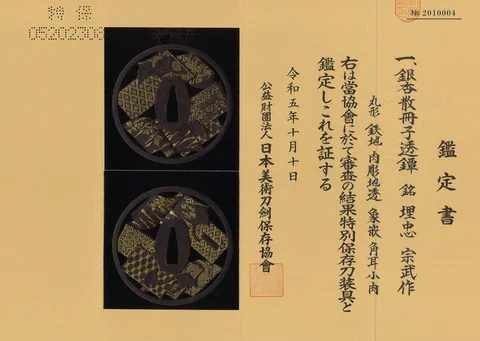 特保
№ 2010004
鑑定書
一、銀杏散冊子透鐔 銘 埋忠 宗武作
丸形 鉄地 肉彫地透 象嵌 角耳小肉
右は當協會に於て審査の結果特別保存刀装具と
鑑定しこれを証する
令和五年十月十日
公益財團法人 日本美術刀剣保存協會